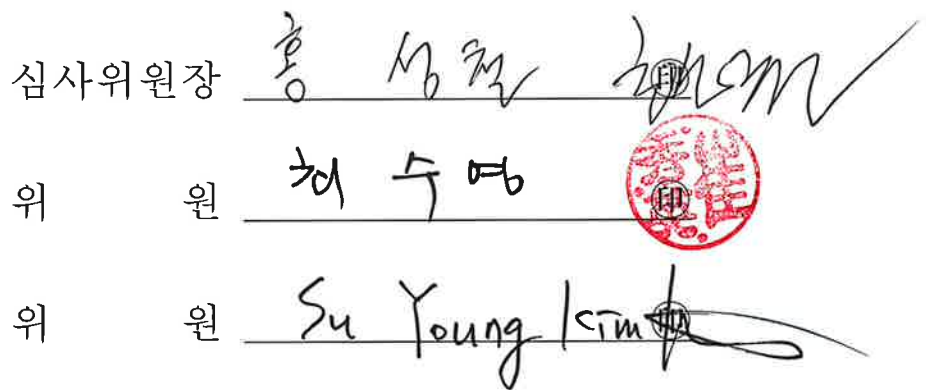 심사위원장 홍 성 철 印
위 원 최 수 영 印
위 원 Su Young Kim 印